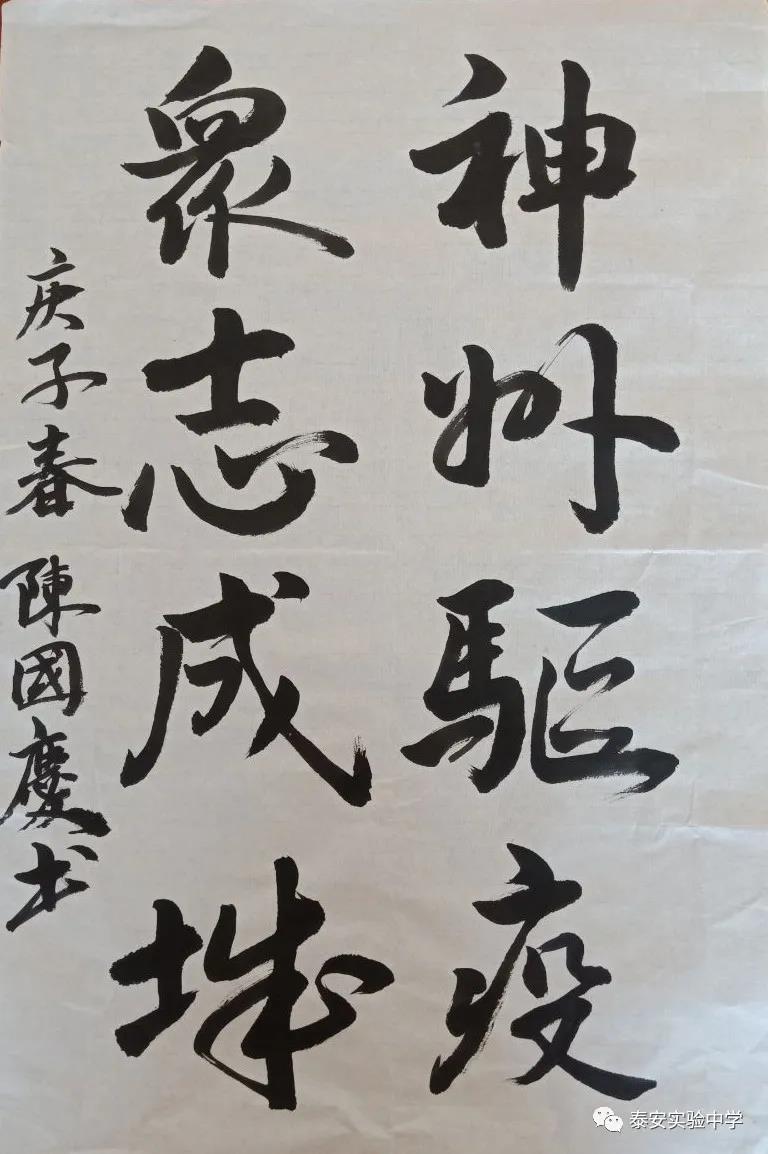 神州驅疫
衆志成城
庚子春 陳國慶书
泰安实验中学